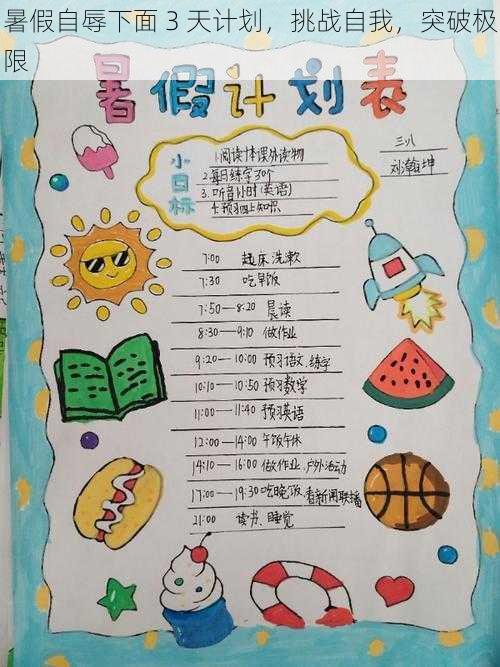 暑假自辱下面 3 天计划，挑战自我，突破极
限
暑假计划表
小目标
1.阅读1本课外读物
2.每日练字30个
3.听音1小时(英语)
4.预习四上知识
三八
刘瀚坤
7:00 起床洗漱
7:30 吃早饭
7:50—8:20 晨读
8:30—9:10 做作业
9:20—10:00 预习语文、练字
10:10—10:50 预习数学
11:00—11:40 预习英语
12:00—14:00 午饭午休
14:10—16:00 做作业、户外活动
17:00—19:30 吃晚饭、看新闻联播
21:00 读书、睡觉